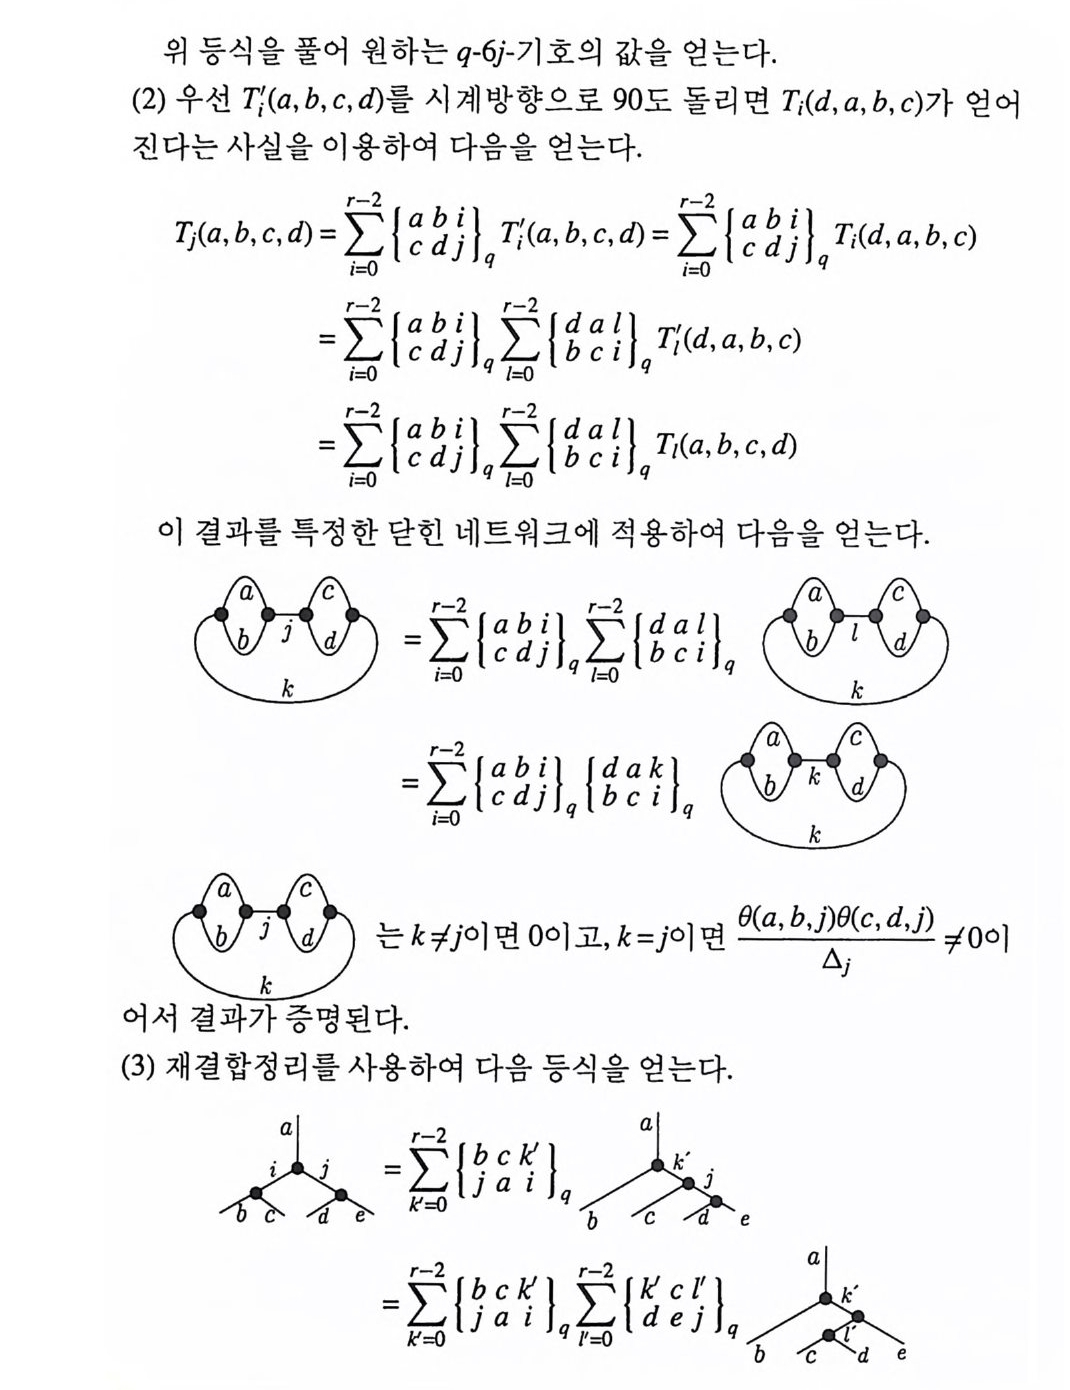 위 등식을 풀어 원하는 q-6j-기호의 값을 얻는다.
(2) 우선 T′ᵢ(a, b, c, d)를 시계방향으로 90도 돌리면 Tᵢ(d, a, b, c)가 얻어
진다는 사실을 이용하여 다음을 얻는다.
Tⱼ(a, b, c, d) = ∑_{i=0}^{r−2} {a b i / c d j}_q T′ᵢ(a, b, c, d) = ∑_{i=0}^{r−2} {a b i / c d j}_q Tᵢ(d, a, b, c)
= ∑_{i=0}^{r−2} {a b i / c d j}_q ∑_{l=0}^{r−2} {d a l / b c i}_q T′ₗ(d, a, b, c)
= ∑_{i=0}^{r−2} {a b i / c d j}_q ∑_{l=0}^{r−2} {d a l / b c i}_q Tₗ(a, b, c, d)
이 결과를 특정한 닫힌 네트워크에 적용하여 다음을 얻는다.
a b j c d k = ∑_{i=0}^{r−2} {a b i / c d j}_q ∑_{l=0}^{r−2} {d a l / b c i}_q a b l c d k
= ∑_{i=0}^{r−2} {a b i / c d j}_q {d a k / b c i}_q a b k c d k
a b j c d k 는 k≠j이면 0이고, k=j이면 θ(a, b, j)θ(c, d, j) / Δⱼ ≠0이
어서 결과가 증명된다.
(3) 재결합정리를 사용하여 다음 등식을 얻는다.
a i j b c d e = ∑_{k′=0}^{r−2} {b c k′ / j a i}_q a k′ j b c d e
= ∑_{k′=0}^{r−2} {b c k′ / j a i}_q ∑_{l′=0}^{r−2} {k′ c l′ / d e j}_q a k′ l′ b c d e